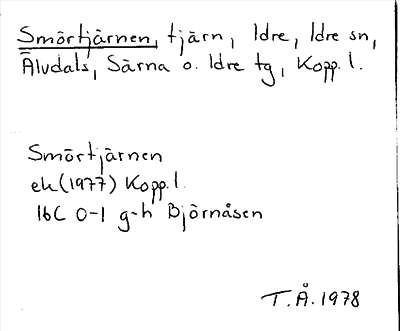 Smörtjärnen, tjärn, Idre, Idre sn,
Älvdals, Särna o. Idre tg, Kopp. l.
Smörtjärnen
ek (1977) Kopp. l.
16C 0-1 g-h Björnåsen
T.Å. 1978